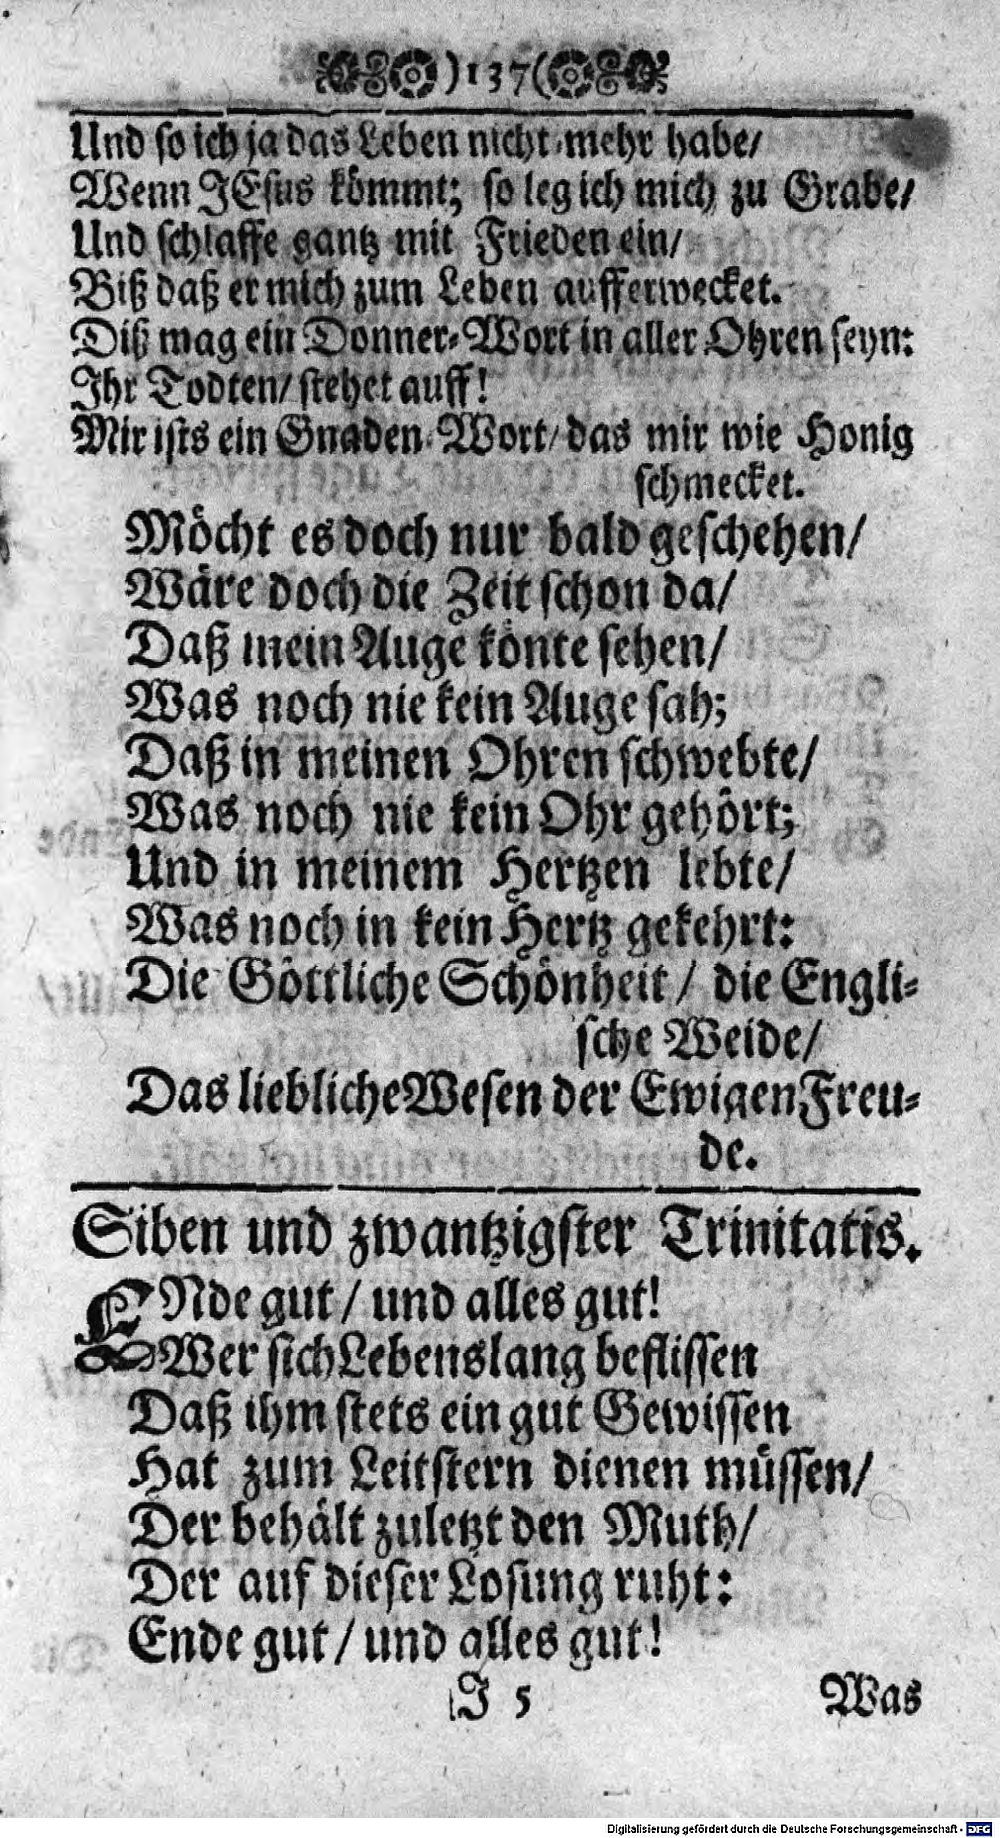 )137(
Und so ich ja das Leben nicht mehr habe/
Wenn JEsus kömmt; so leg ich mich zu Grabe/
Und schlaffe gantz mit Frieden ein/
Biß daß er mich zum Leben aufferwecket.
Diß mag ein Donner-Wort in aller Ohren seyn:
Ihr Todten/ stehet auff!
Mir ists ein Gnaden-Wort/ das mir wie Honig
schmecket.
Möcht es doch nur bald geschehen/
Wäre doch die Zeit schon da/
Daß mein Auge könte sehen/
Was noch nie kein Auge sah;
Daß in meinen Ohren schwebte/
Was noch nie kein Ohr gehört;
Und in meinem Hertzen lebte/
Was noch in kein Hertz gekehrt:
Die Göttliche Schönheit / die Engli-
sche Weide/
Das liebliche Wesen der Ewigen Freu-
de.
Siben und zwantzigster Trinitatis.
ENde gut / und alles gut!
Wer sich Lebenslang beflissen
Daß ihm stets ein gut Gewissen
Hat zum Leitstern dienen müssen/
Der behält zuletzt den Muth/
Der auf dieser Losung ruht:
Ende gut / und alles gut!
J 5 Was
Digitalisierung gefördert durch die Deutsche Forschungsgemeinschaft - DFG